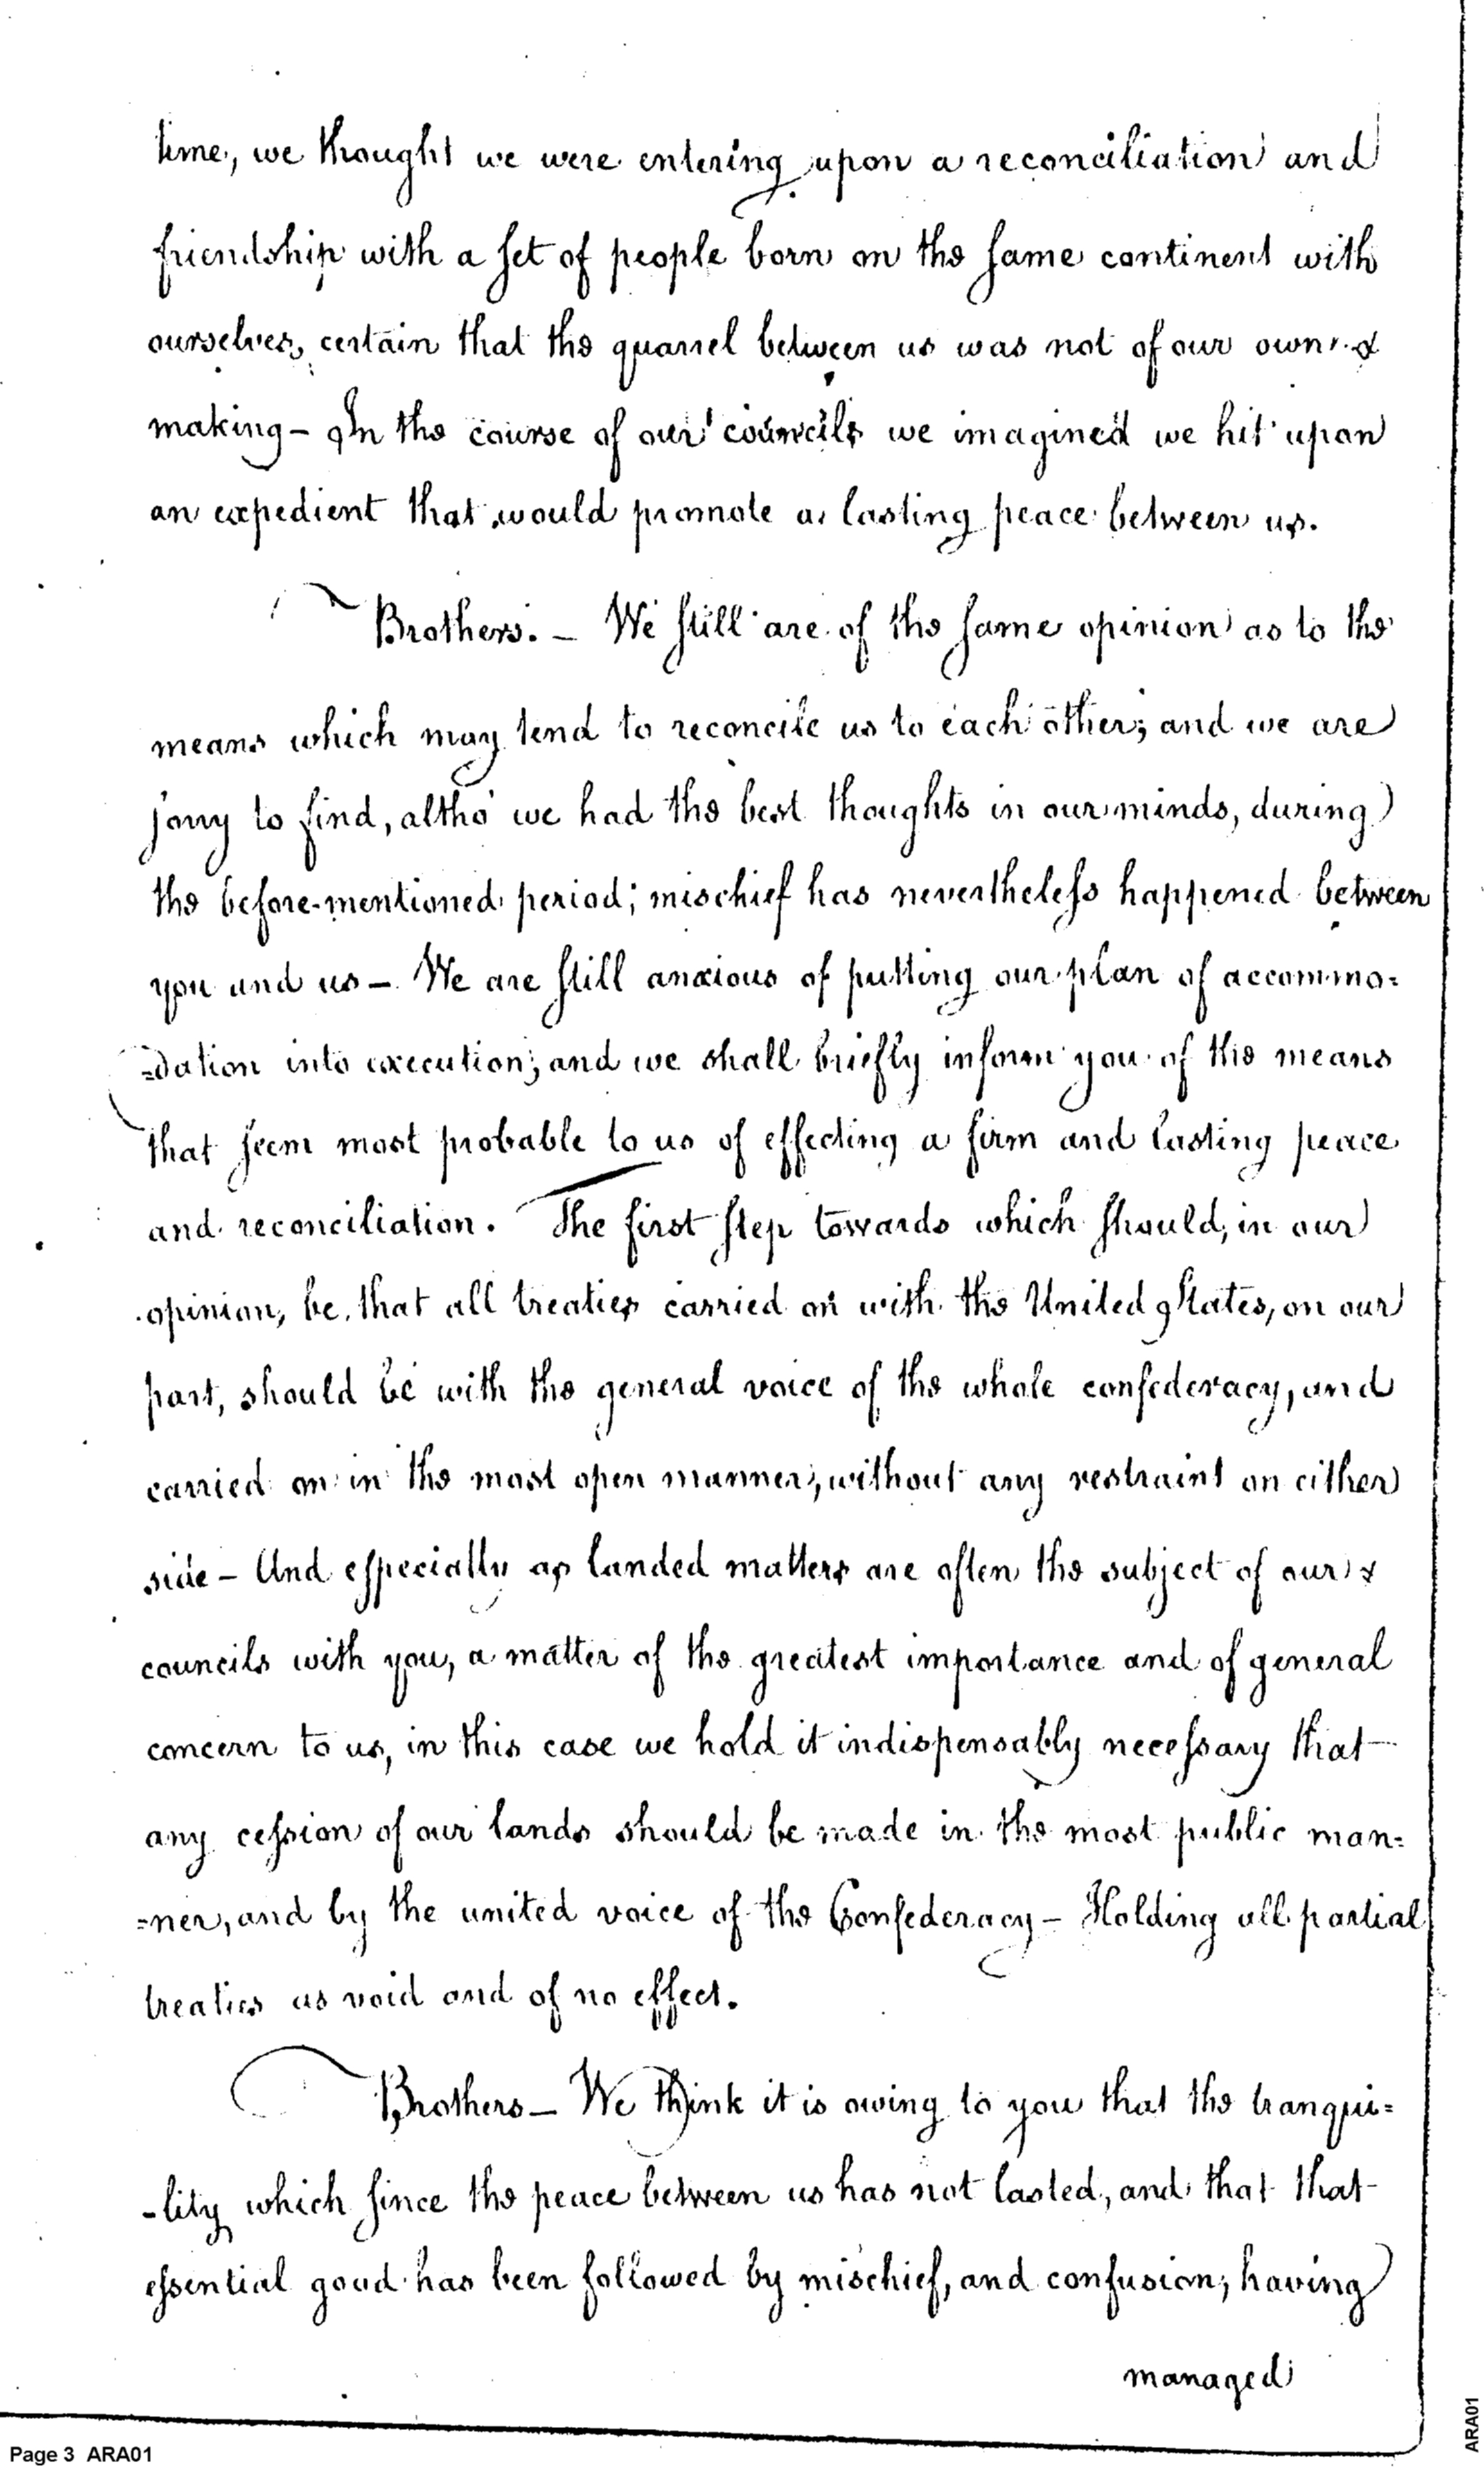 time, we thought we were entering upon a reconciliation and
friendship with a set of people born on the same continent with
ourselves, certain that the quarrel between us was not of our own
making – In the course of our councils we imagined we hit upon
an expedient that would promote a lasting peace between us.
Brothers. – We still are of the same opinion as to the
means which may tend to reconcile us to each other; and we are
sorry to find, altho' we had the best thoughts in our minds, during
the before-mentioned period; mischief has nevertheless happened between
you and us – We are still anxious of putting our plan of accommo=
=dation into execution; and we shall briefly inform you of the means
that seem most probable to us of effecting a firm and lasting peace
and reconciliation. The first step towards which should, in our
opinion, be, that all treaties carried on with the United States, on our
part, should be with the general voice of the whole confederacy, and
carried on in the most open manner, without any restraint on either
side – And especially as landed matters are often the subject of our
councils with you, a matter of the greatest importance and of general
concern to us, in this case we hold it indispensably necessary that
any cession of our lands should be made in the most public man=
=ner, and by the united voice of the Confederacy – Holding all partial
treaties as void and of no effect.
Brothers – We think it is owing to you that the tranqui=
-lity which since the peace between us has not lasted, and that that
essential good has been followed by mischief, and confusion; having
managed
Page 3 ARA01
ARA01